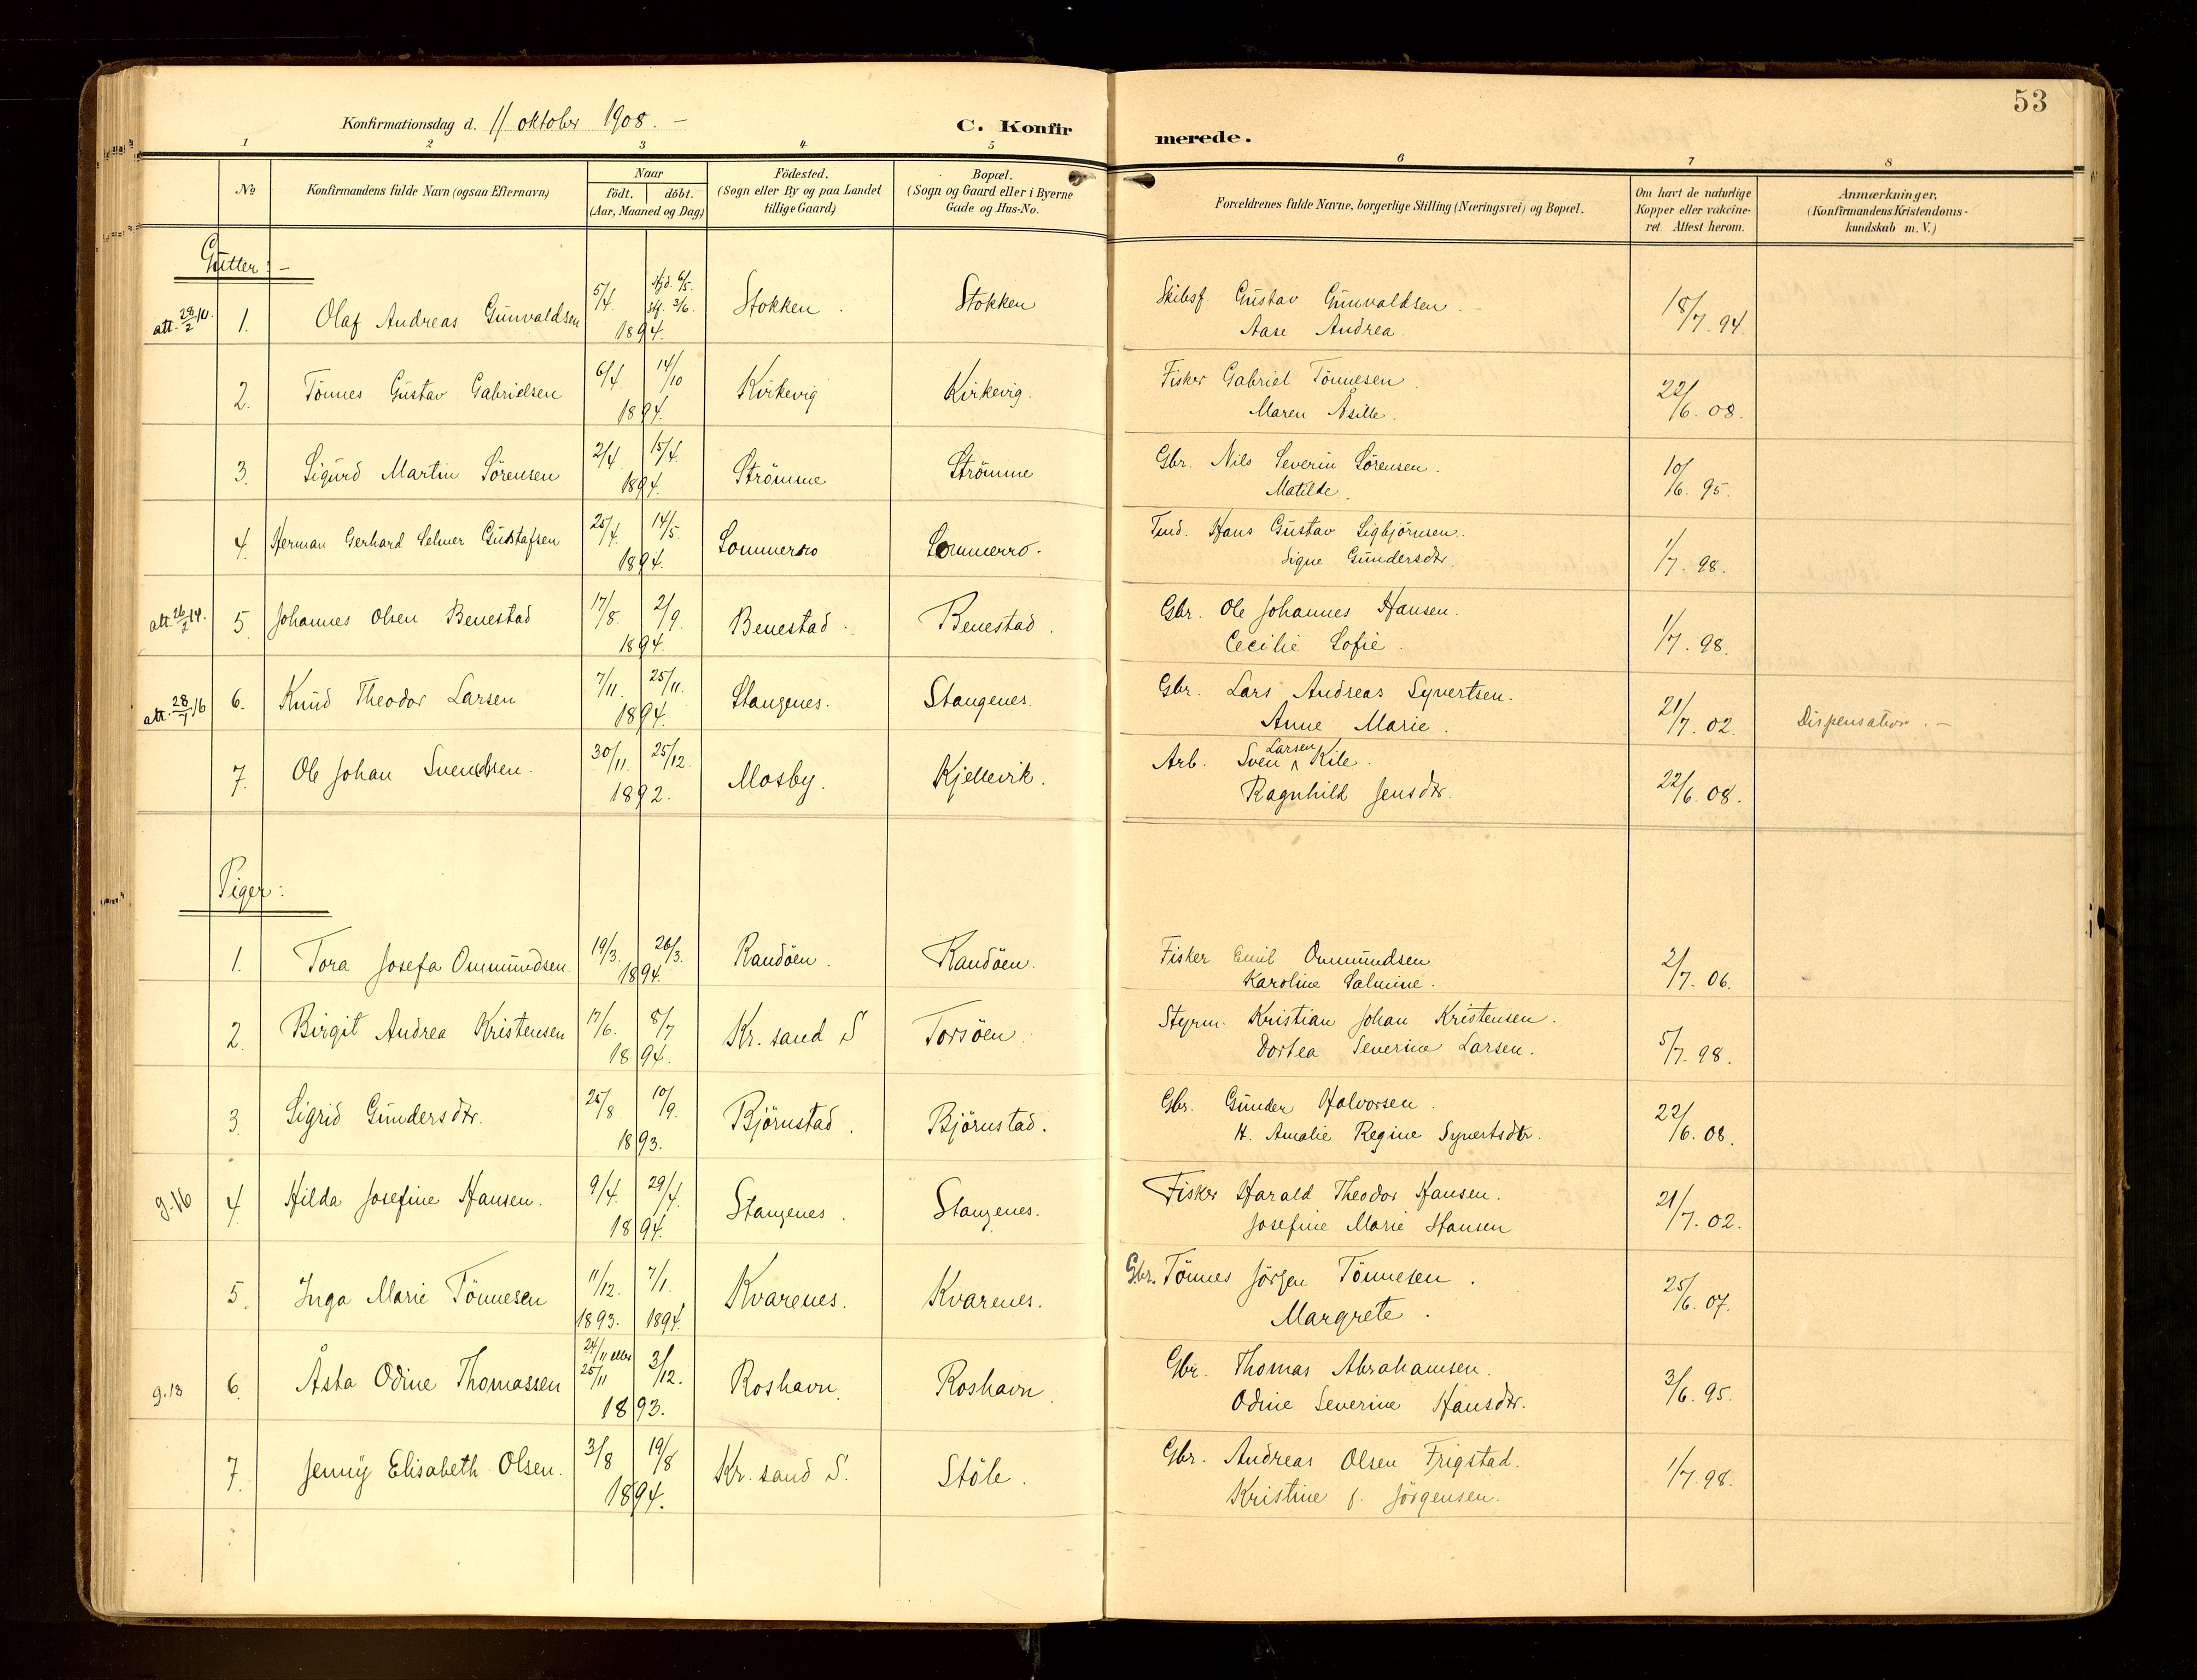 53
Konfirmationsdag d. 11 oktober 1908. –
C. Konfir merede.
1 2 3 4 5 6 7 8
№
Konfirmandens fulde Navn (ogsaa Efternavn)
Naar
födt. döbt.
(Aar, Maaned og Dag)
Födested.
(Sogn eller By og paa Landet
tillige Gaard)
Bopæl.
(Sogn og Gaard eller i Byerne
Gade og Hus-No.
Forældrenes fulde Navne, borgerlige Stilling (Næringsvei) og Bopæl.
Om havt de naturlige
Kopper eller vakcine-
ret. Attest herom.
Anmærkninger,
(Konfirmandens Kristendoms-
kundskab m. V.)
Gutter: –
att. 28/2 10. 1. Olaf Andreas Gunvaldsen 5/4. hjd. 6/5. stf. 3/6. 1894. Stokken. Stokken Skibsf. Gustav Gunvaldsen. 18/7. 94.
Aase Andrea.
2. Tönnes Gustav Gabrielsen 6/4. 14/10 1894. Kirkevig Kirkevig. Fisker Gabriel Tönnesen. 22/6. 08.
Maren Åsille.
3. Sigurd Martin Sörensen 2/4. 15/4. 1894. Strömme Strömme Gbr. Nils Severin Sörensen. 10/6. 95.
Matilde.
4. Herman Gerhard Selmer Gustafsen 25/4. 14/5. 1894. Sommerro Sommerro. Tmd. Hans Gustav Sigbjörnsen. 1/7. 98.
Signe Gundersdtr.
att. 26/2 14. 5. Johannes Olsen Benestad 17/8. 2/9. 1894. Benestad. Benestad. Gbr. Ole Johannes Hansen. 1/7. 98.
Cecilie Sofie.
att. 28/1 16 6. Knud Theodor Larsen 7/11. 25/11. 1894. Stangenes. Stangenes. Gbr. Lars Andreas Syvertsen. 21/7. 02. Dispensation. –
Anne Marie.
7. Ole Johan Svendsen. 30/11. 25/12. 1892. Mosby. Kjellevik. Arb. Sven Larsen Kile. 22/6. 08.
Ragnhild Jensdtr.
Piger:
1. Tora Josefa Ommundsen. 19/3. 26/3. 1894. Randöen. Randöen. Fisker Emil Ommundsen 2/7. 06.
Karoline Salmine.
2. Birgit Andrea Kristensen 17/6. 8/7 1894. Kr. sand S Torsöen. Styrm. Kristian Johan Kristensen. 5/7. 98.
Dortea Severine Larsen.
3. Sigrid Gundersdtr. 25/8. 10/9. 1893. Björnstad. Björnstad. Gbr. Gunder Halvorsen. 22/6. 08.
H. Amalie Regine Syvertsdtr.
g. 16 4. Hilda Josefine Hansen. 9/4. 29/4. 1894. Stangenes. Stangenes. Fisker Harald Theodor Hansen. 21/7. 02.
Josefine Marie Hansen
5. Inga Marie Tönnesen 11/12. 1893. 7/1. 1894. Kvarenes. Kvarenes. Gbr. Tönnes Jörgen Tönnesen. 25/6. 07.
Margrete.
g. 18 6. Åsta Odine Thomassen 24/11 eller 25/11 3/12. 1893. Roshavn. Roshavn. Gbr. Thomas Abrahamsen. 3/6. 95.
Odine Severine Hansdtr.
7. Jenny Elisabeth Olsen. 3/8 19/8 1894. Kr. sand S. Stöle. Gbr. Andreas Olsen Frigstad. 1/7. 98.
Kristine f. Jörgensen.